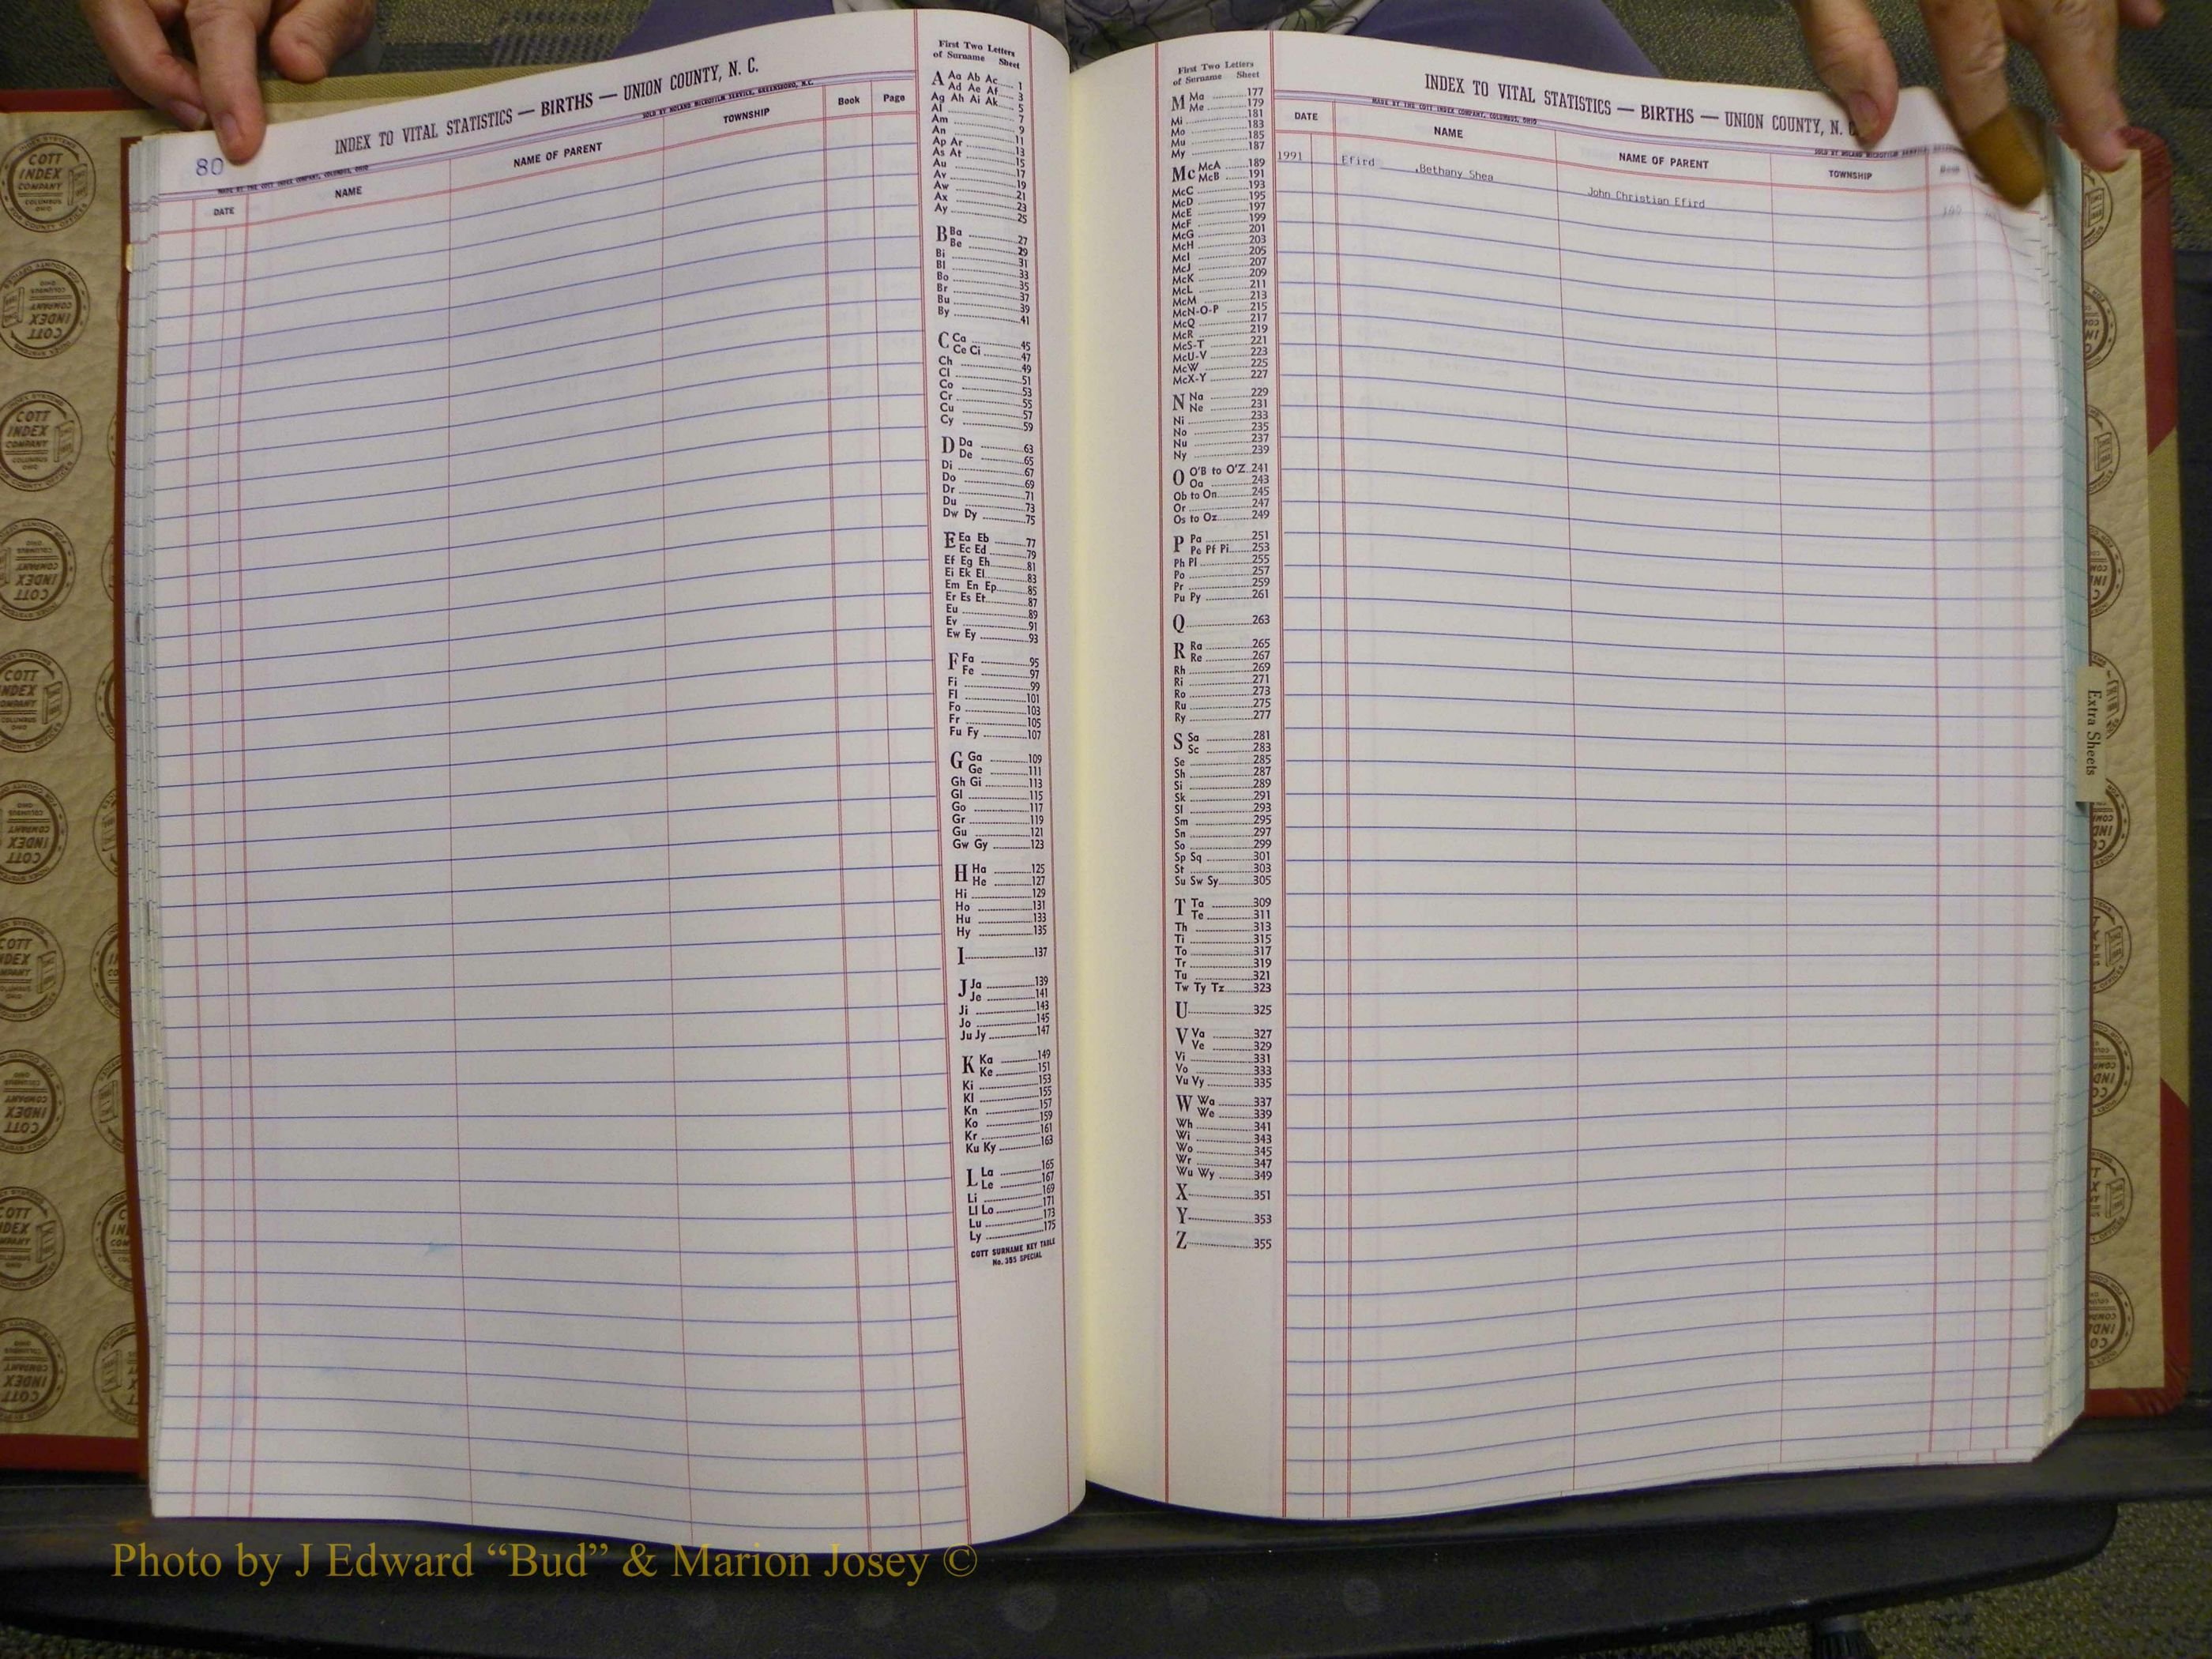 80
INDEX TO VITAL STATISTICS — BIRTHS — UNION COUNTY, N. C.
MADE BY THE COTT INDEX COMPANY, COLUMBUS, OHIO
SOLD BY NOLAND MICROFILM SERVICE, GREENSBORO, N.C.
DATE NAME NAME OF PARENT TOWNSHIP Book Page
First Two Letters
of Surname Sheet
A Aa Ab Ac 1
Ad Ae Af 3
Ag Ah Ai Ak 5
Al 7
Am 9
An 11
Ap Ar 13
As At 15
Au 17
Av 19
Aw 21
Ax 23
Ay 25
B Ba 27
Be 29
Bi 31
Bl 33
Bo 35
Br 37
Bu 39
By 41
C Ca 45
Ce Ci 47
Ch 49
Cl 51
Co 53
Cr 55
Cu 57
Cy 59
D Da 63
De 65
Di 67
Do 69
Dr 71
Du 73
Dw Dy 75
E Ea Eb 77
Ec Ed 79
Ef Eg Eh 81
Ei Ek El 83
Em En Ep 85
Er Es Et 87
Eu 89
Ev 91
Ew Ey 93
F Fa 95
Fe 97
Fi 99
Fl 101
Fo 103
Fr 105
Fu Fy 107
G Ga 109
Ge 111
Gh Gi 113
Gl 115
Go 117
Gr 119
Gu 121
Gw Gy 123
H Ha 125
He 127
Hi 129
Ho 131
Hu 133
Hy 135
I 137
J Ja 139
Je 141
Ji 143
Jo 145
Ju Jy 147
K Ka 149
Ke 151
Ki 153
Kl 155
Kn 157
Ko 159
Kr 161
Ku Ky 163
L La 165
Le 167
Li 169
Ll Lo 171
Lu 173
Ly 175
COTT SURNAME KEY TABLE
No. 395 SPECIAL
First Two Letters
of Surname Sheet
M Ma 177
Me 179
Mi 181
Mo 183
Mu 185
My 187
Mc McA 189
McB 191
McC 193
McD 195
McE 197
McF 199
McG 201
McH 203
McI 205
McJ 207
McK 209
McL 211
McM 213
McN-O-P 215
McQ 217
McR 219
McS-T 221
McU-V 223
McW 225
McX-Y 227
N Na 229
Ne 231
Ni 233
No 235
Nu 237
Ny 239
O O'B to O'Z 241
Oa 243
Ob to On 245
Or 247
Os to Oz 249
P Pa 251
Pe Pf Pi 253
Ph Pl 255
Po 257
Pr 259
Pu Py 261
Q 263
R Ra 265
Re 267
Rh 269
Ri 271
Ro 273
Ru 275
Ry 277
S Sa 281
Sc 283
Se 285
Sh 287
Si 289
Sk 291
Sl 293
Sm 295
Sn 297
So 299
Sp Sq 301
St 303
Su Sw Sy 305
T Ta 309
Te 311
Th 313
Ti 315
To 317
Tr 319
Tu 321
Tw Ty Tz 323
U 325
V Va 327
Ve 329
Vi 331
Vo 333
Vu Vy 335
W Wa 337
We 339
Wh 341
Wi 343
Wo 345
Wr 347
Wu Wy 349
X 351
Y 353
Z 355
INDEX TO VITAL STATISTICS — BIRTHS — UNION COUNTY, N. C.
MADE BY THE COTT INDEX COMPANY, COLUMBUS, OHIO
SOLD BY NOLAND MICROFILM SERVICE,
DATE NAME NAME OF PARENT TOWNSHIP
1991 Efird ,Bethany Shea John Christian Efird
Extra Sheets
COTT INDEX COMPANY COLUMBUS OHIO
Photo by J Edward “Bud” & Marion Josey ©